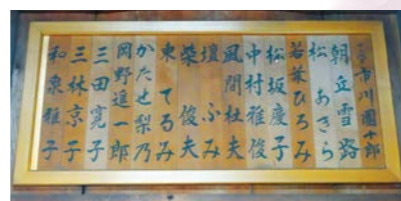 十二代 市川團十郎
朝丘雪路
松あきら
若葉ひろみ
松坂慶子
中村雅俊
風間杜夫
壇ふみ
柴俊夫
東てるみ
かたせ梨乃
岡野進一郎
三田寛子
三林京子
和泉雅子